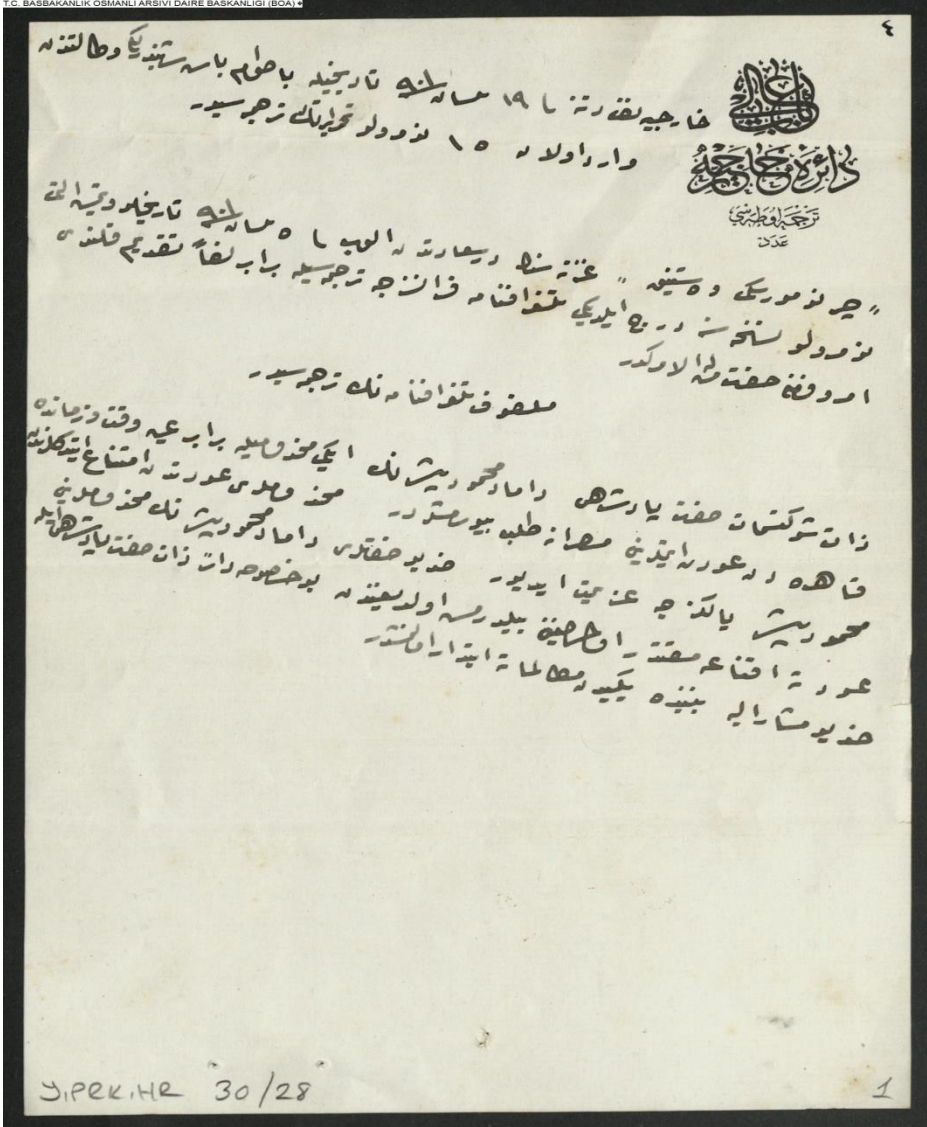 T.C. BASBAKANLIK OSMANLI ARSIVI DAIRE BASKANLIGI (BOA)
٤
باب عالی
دائرهٔ خارجیه
ترجمه اوطه‌سی
عدد
خارجیه نظارتنه فی ١٩ نیسان ٩٠١ تاریخیله شهبندرلكی وكالتندن
وارد اولان ١٥ نومرولو تحریراتك ترجمه‌سیدر
غزته‌سنك درسعادتدن الوب فی ٥ نیسان ٩٠١ تاریخلو
نومرولو نسخه‌سنه درج ایلدیكی تلغرافنامه فرانسزجه ترجمه‌سیله برابر لفاً تقدیم قلندی
امر وفرمان حضرت من له الامركدر
ملفوف تلغرافنامه‌نك ترجمه‌سیدر
ذات شوكتسمات حضرت پادشاهی داماد محمود پاشانك ایكی مخدومیله برابر عین وقت وزمانده
قاهره دن عودت ایتمسنی مصرانه طلب بیورمشلردر مخدوملری عودتدن امتناع ایتدكلرندن
محمود پاشا یالكزجه عزیمت ایدیور خدیو حضرتلری داماد محمود پاشانك مخدوملرینی
عودته اقناعه مقتدر اوله‌میه‌جغنی بیلدرمش اولدیغندن بو خصوصه دائر ذات حضرت پادشاهی ایله
خدیو مشارالیه بیننده یكیدن مكالماته ابتدار اولنمشدر
Y.PRK.HR 30/28
1